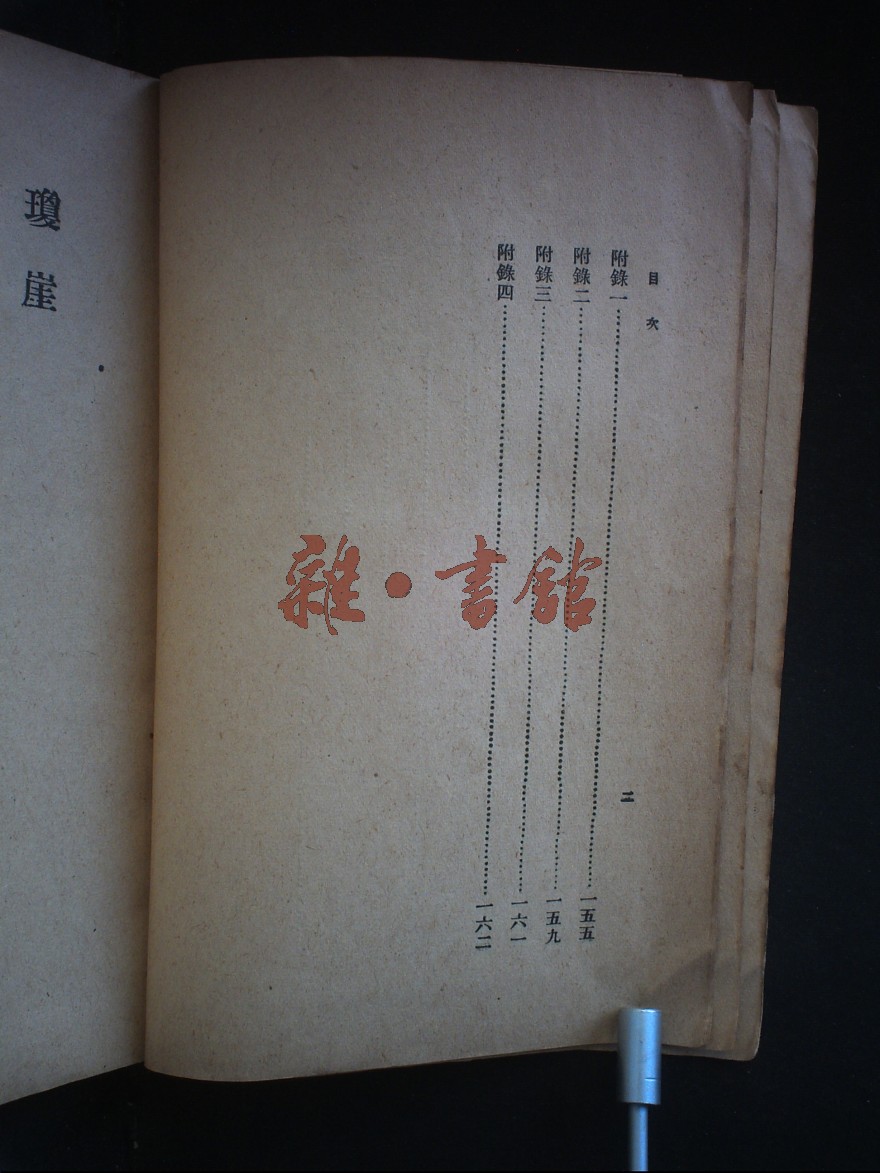 目次
附錄一……一五五
附錄二……一五九
附錄三……一六一
附錄四……一六二
二
瓊崖
雜·書館